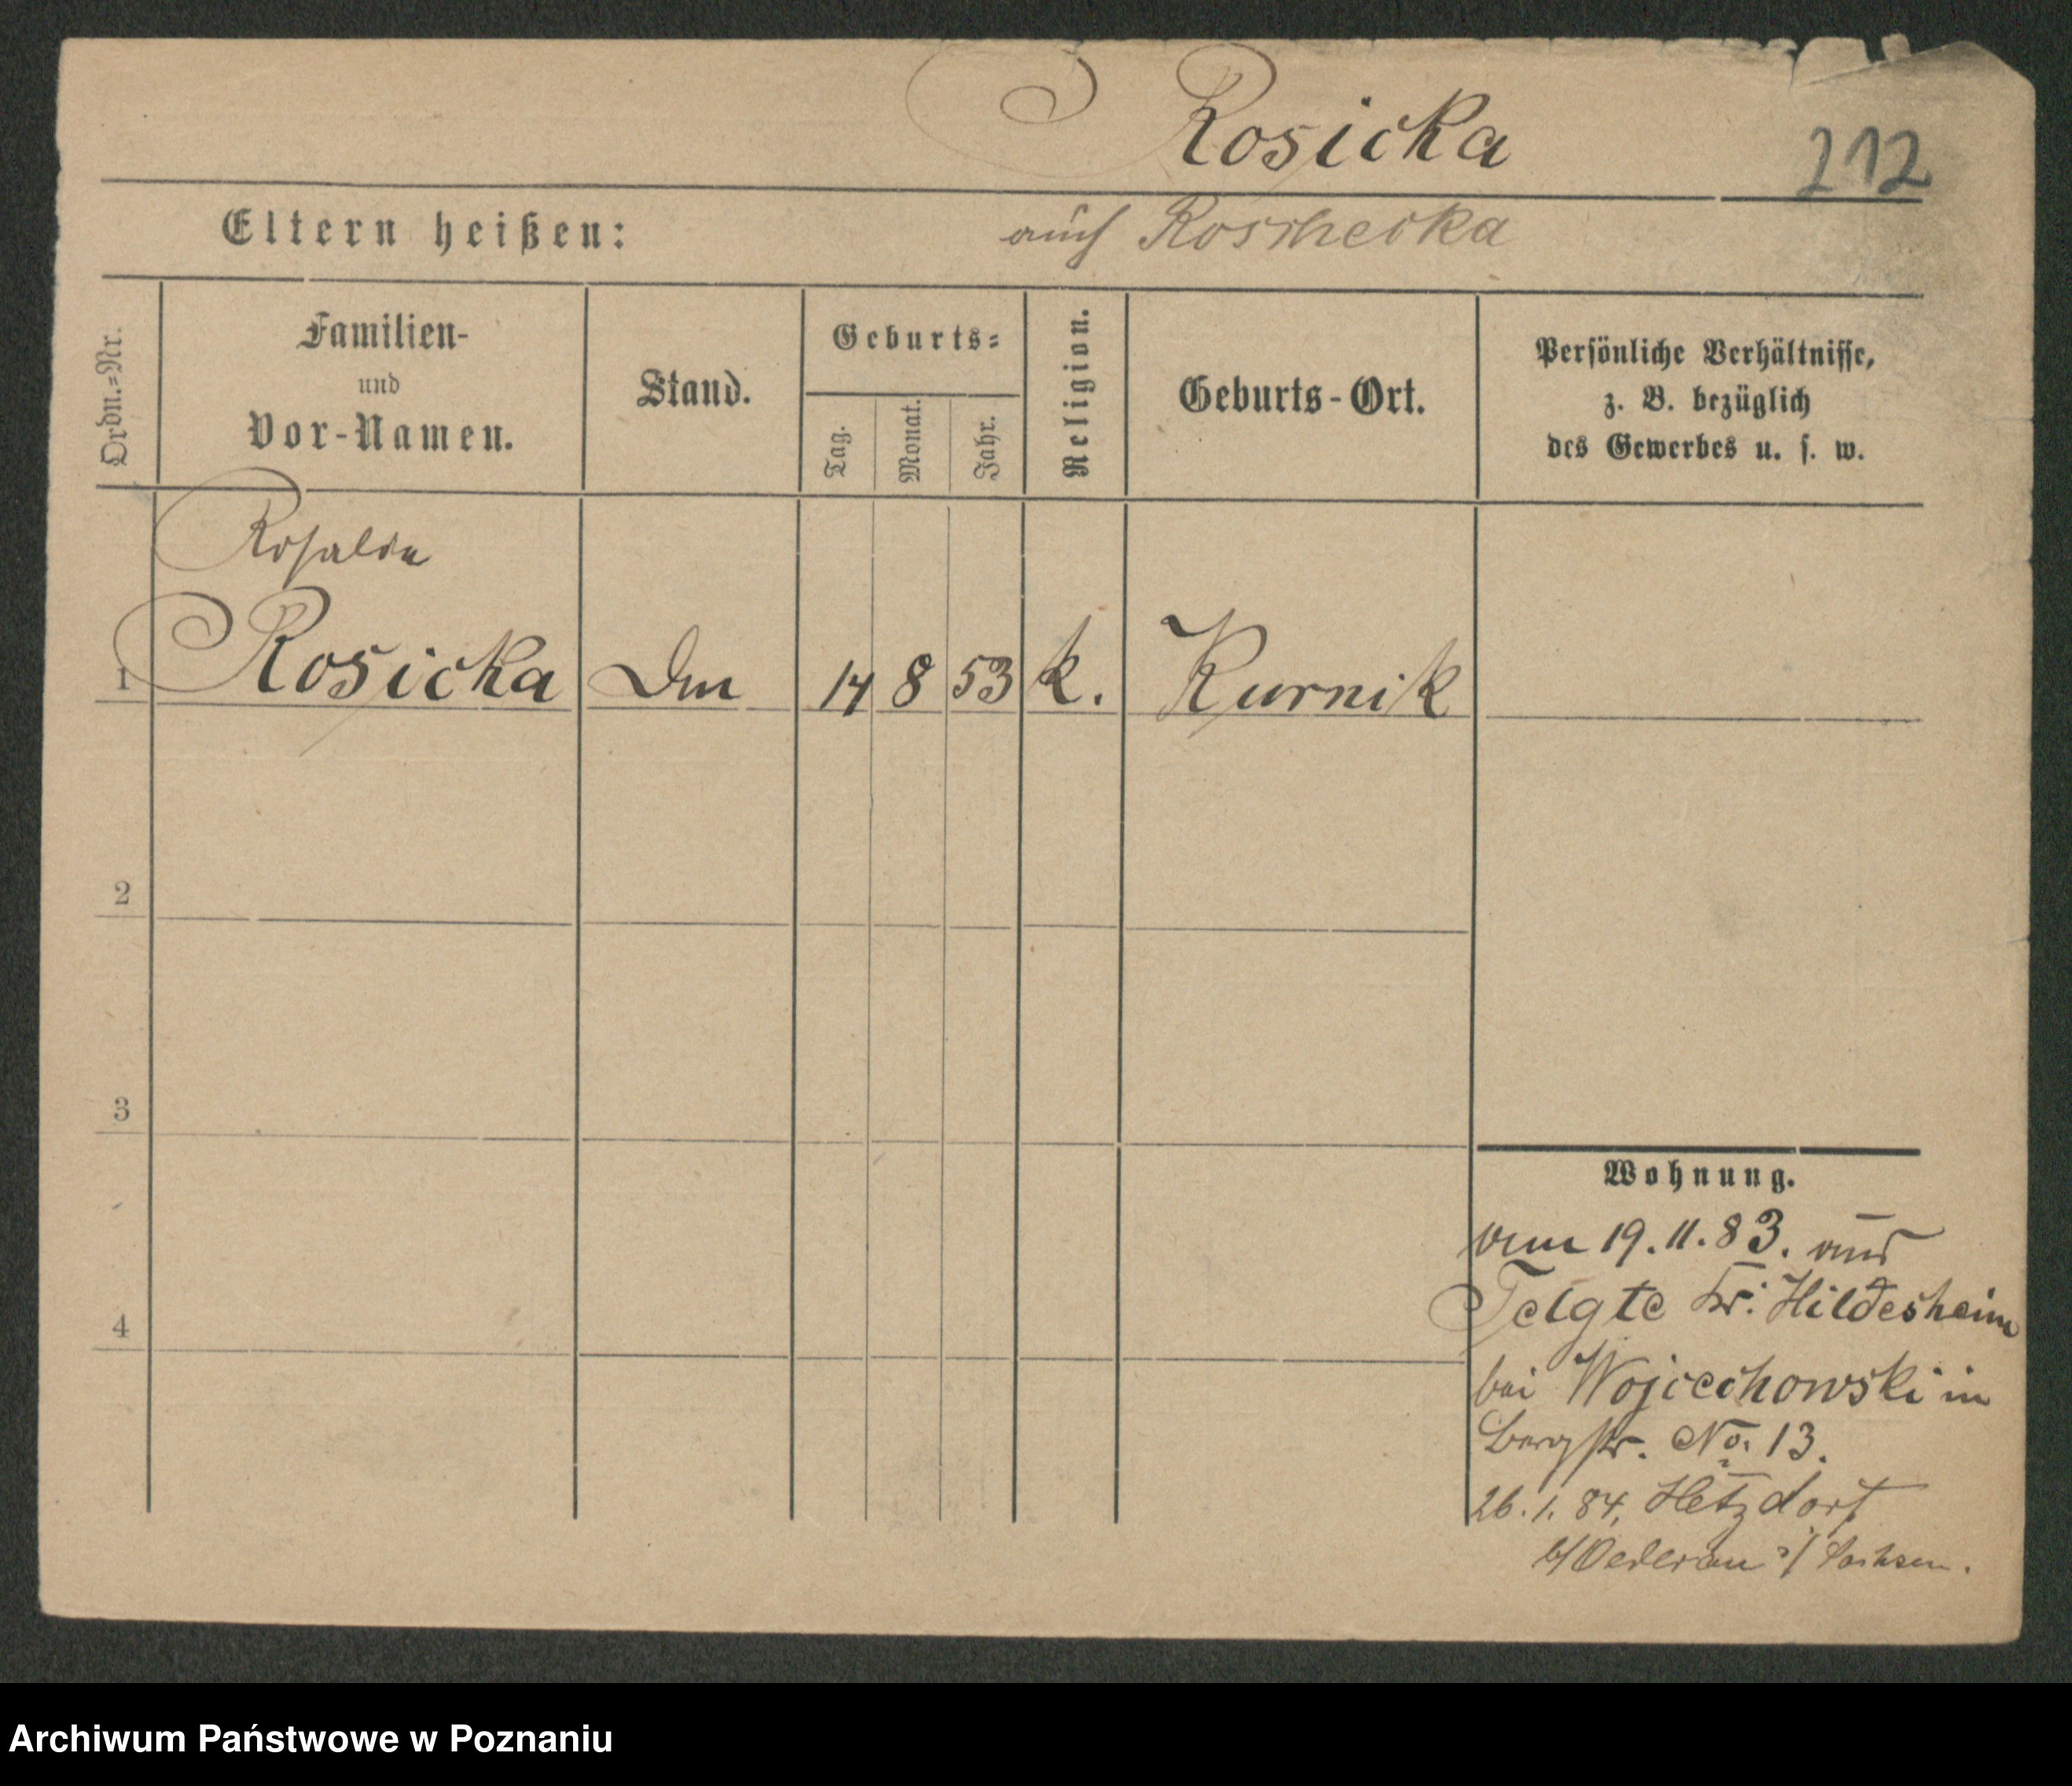 Rosicka
212
Eltern heißen:
auch Roschecka
Ordn.=Nr.
Familien-
und
Vor-Namen.
Stand.
Geburts=
Tag.
Monat.
Jahr.
Religion.
Geburts-Ort.
Persönliche Verhältnisse,
z. B. bezüglich
des Gewerbes u. s. w.
Rosalia
1 Rosicka 14 8 53 k. Kurnik
2
3
4
Wohnung.
vom 19. 11. 83. aus
Telgte Kr: Hildesheim
bei Wojcechowski in
Bergstr. No. 13.
26. 1. 84, Hetzdorf
b/ Oederan i/ Sachsen.
Archiwum Państwowe w Poznaniu